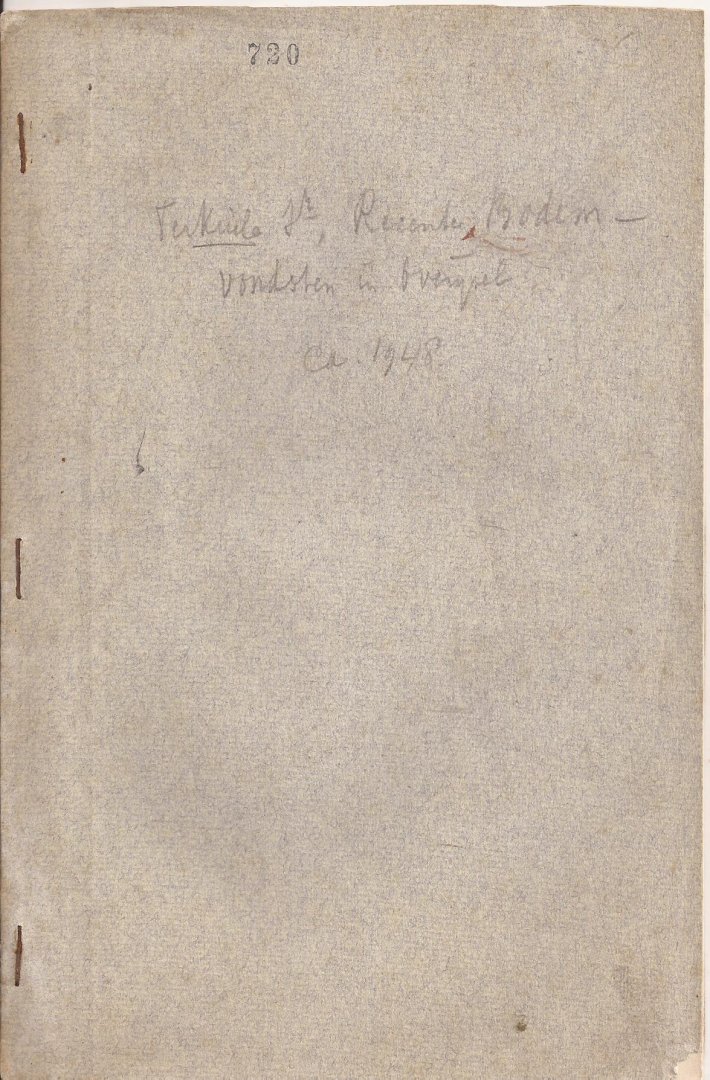 720
Ter Kuile Jr, Recente Bodem-
vondsten in Overijsel
ca. 1948.